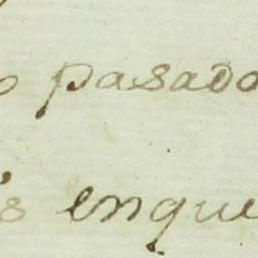 o pasado
s enque